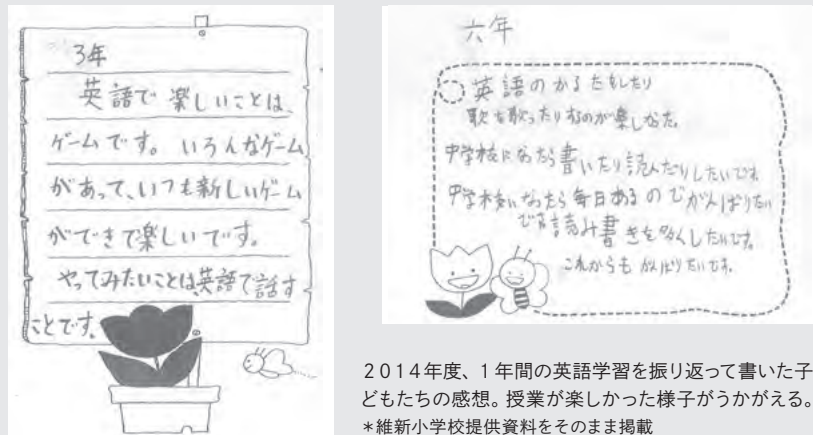 3年
英語で 楽しいことは、
ゲームです。 いろんなゲーム
があって、いつも新しいゲーム
ができて楽しいです。
やってみたいことは、英語で話す
ことです。
六年
英語のかるたをしたり
歌を歌ったりするのが楽しかった。
中学校になったら書いたり読んだりしたいです。
中学校になったら毎日あるのでがんばりたい
です。読み書きを多くしたいです。
これからも がんばりたいです。
2014年度、1年間の英語学習を振り返って書いた子
どもたちの感想。授業が楽しかった様子がうかがえる。
*維新小学校提供資料をそのまま掲載